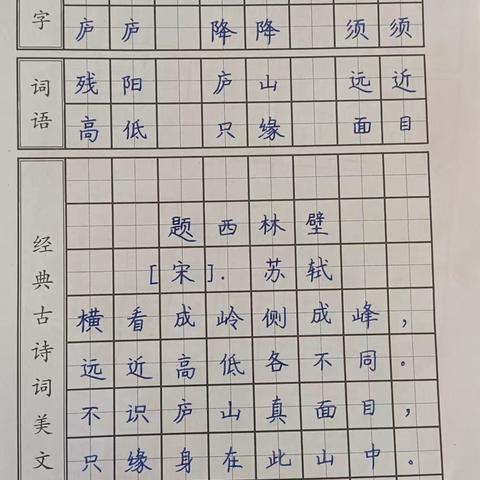 字
庐庐 降降 须须
词语
残阳 庐山 远近
高低 只缘 面目
经典古诗词美文
题西林壁
[宋]. 苏轼
横看成岭侧成峰，
远近高低各不同。
不识庐山真面目，
只缘身在此山中。